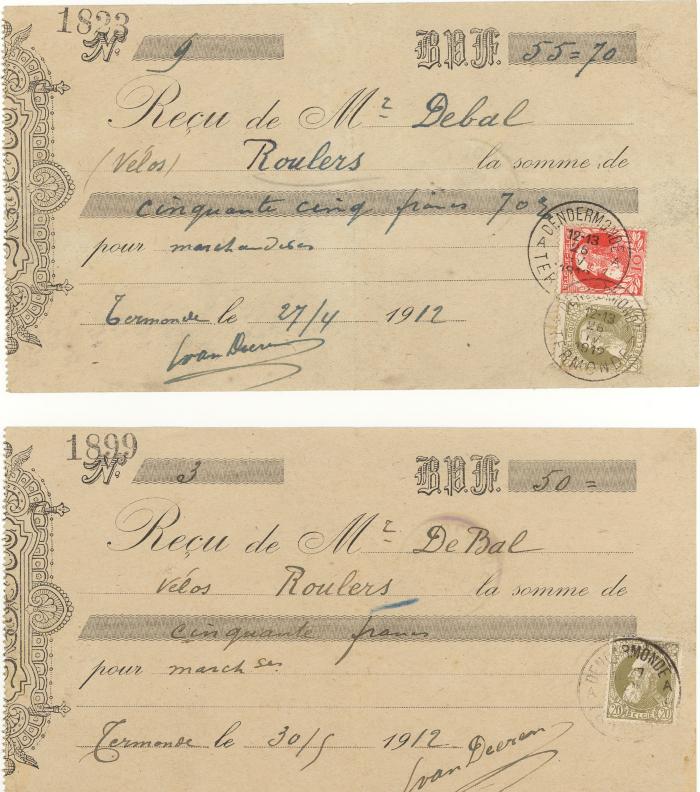 1823
No. 9 B.P.F. 55=70
Reçu de Mr Debal
(Vélos) Roulers la somme de
cinquante cinq francs 70
pour marchandises
Termonde le 27/4 1912
DENDERMONDE
12-13
26
IV
1912
TERMONDE
1899
No. 3 B.P.F. 50=
Reçu de Mr De Bal
Vélos Roulers la somme de
cinquante francs
pour marchses
Termonde le 30/5 1912
DENDERMONDE
20 BELGIË 20